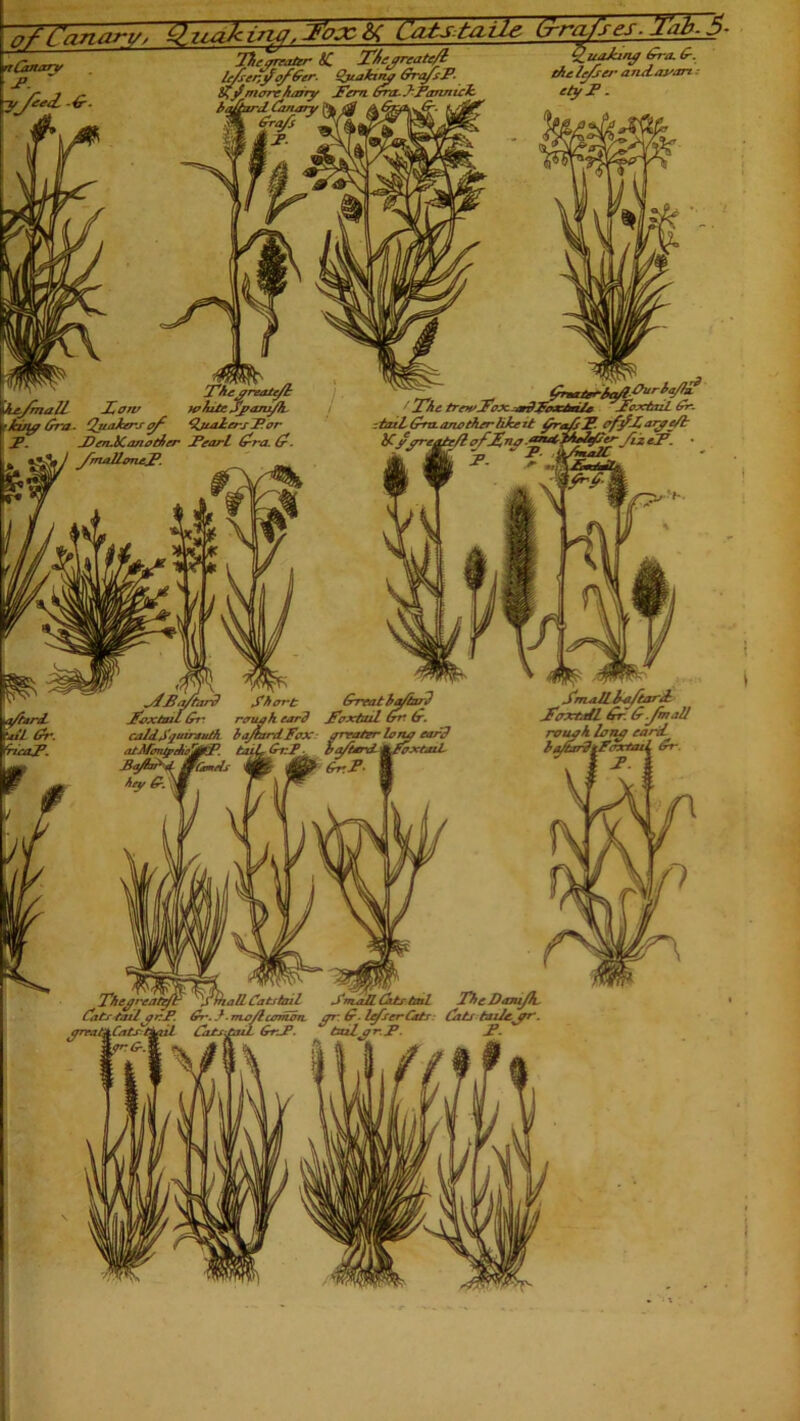 of Canary, Quaking, Fox & Cats-taile Grasses. Tab. 5.
Canary
P.
seed - G.
The greater &
lesser of Ger.
& more hairy
bastard Canary
Grass
P.
The greatest
Quaking Grass P.
Fem. Gra. Pannick
G.
Quaking Gra. G.
the lesser and avari:
ety P.
The small
king Gra-
P.
Low
Quakers of
Den. & another
small one P.
The greatest
white Spanish
Quakers P or
Pearl Gra. G.
The trew Fox-
:tail Gra. another like it
& greatest of Eng
P.
Greater bast
Foxtaile
grass P.
and lesser
P.
Our bast
Foxtail Gr.
of Largest
size P.
small
Foxtail
gr. G.
astard
tail Gr.
rica P.
A Bastard
Foxtail Gr:
cald Squirauth
at P.
Bastard Camels
hey G.
Short
rough eard
bastard Fox:
tail Gr: P.
Great bastard
Foxtail Gr: G.
greater Long eard
bastard Foxtail
Gr: P.
Small bastard
Foxtail Gr: G. small
rough long eard
bastard Foxtail Gr.
P.
The greatest
Cats tail gr: P.
great Cats tail
gr: G.
Small Cats tail
Gr. most common
Cats tail Gr: P.
Small Cats tail
gr: G. lesser Cats:
tail gr. P.
The Danish
Cats taile gr.
P.